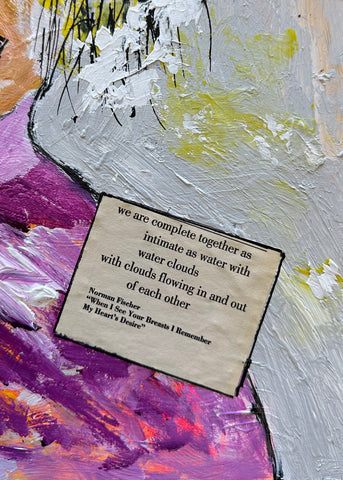 we are complete together as
intimate as water with
water clouds
with clouds flowing in and out
of each other
Norman Fischer
"When I See Your Breasts I Remember
My Heart's Desire"